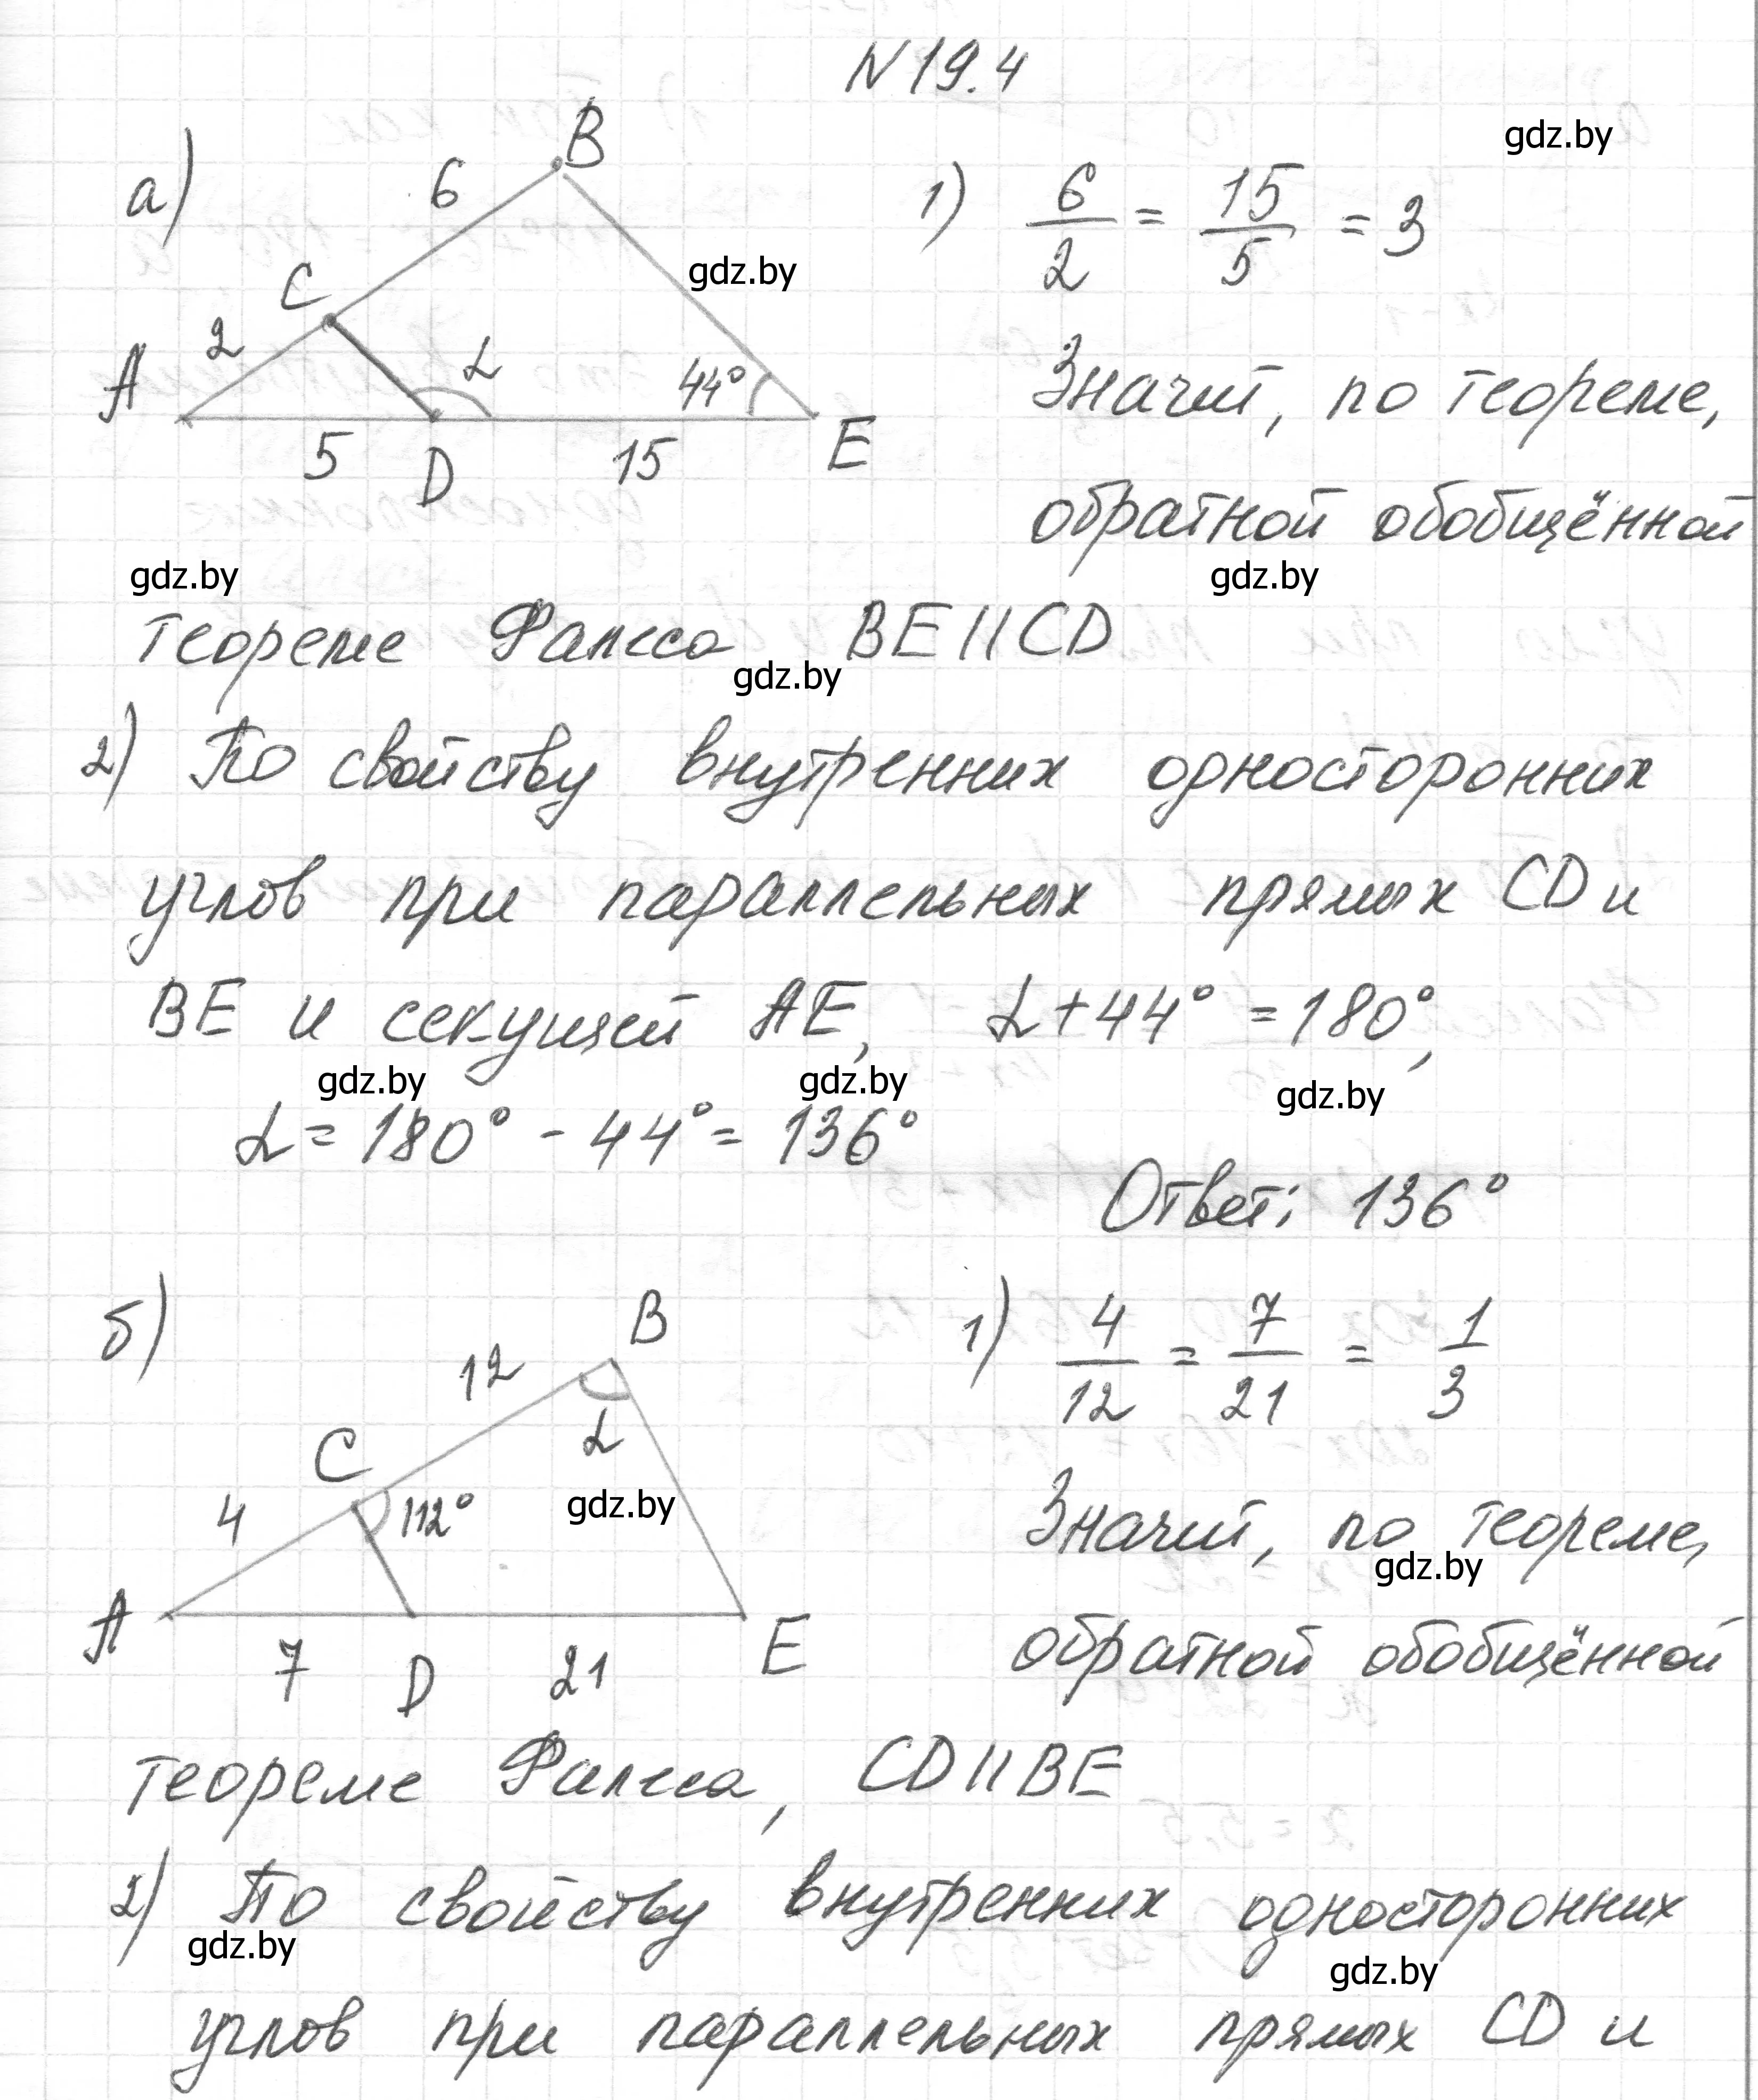 N 19.4
а)
B
6
C
2
A
α
44°
5
D
15
E
1) 6/2 = 15/5 = 3
Значит, по теореме,
обратной обобщённой
теореме Фалеса BE || CD
2) По свойству внутренних односторонних
углов при параллельных прямых CD и
BE и секущей AE, α + 44° = 180°,
α = 180° - 44° = 136°
Ответ: 136°
б)
B
12
α
C
112°
4
A
7
D
21
E
1) 4/12 = 7/21 = 1/3
Значит, по теореме,
обратной обобщённой
теореме Фалеса, CD || BE
2) По свойству внутренних односторонних
углов при параллельных прямых CD и
gdz.by
gdz.by
gdz.by
gdz.by
gdz.by
gdz.by
gdz.by
gdz.by
gdz.by
gdz.by
gdz.by
gdz.by